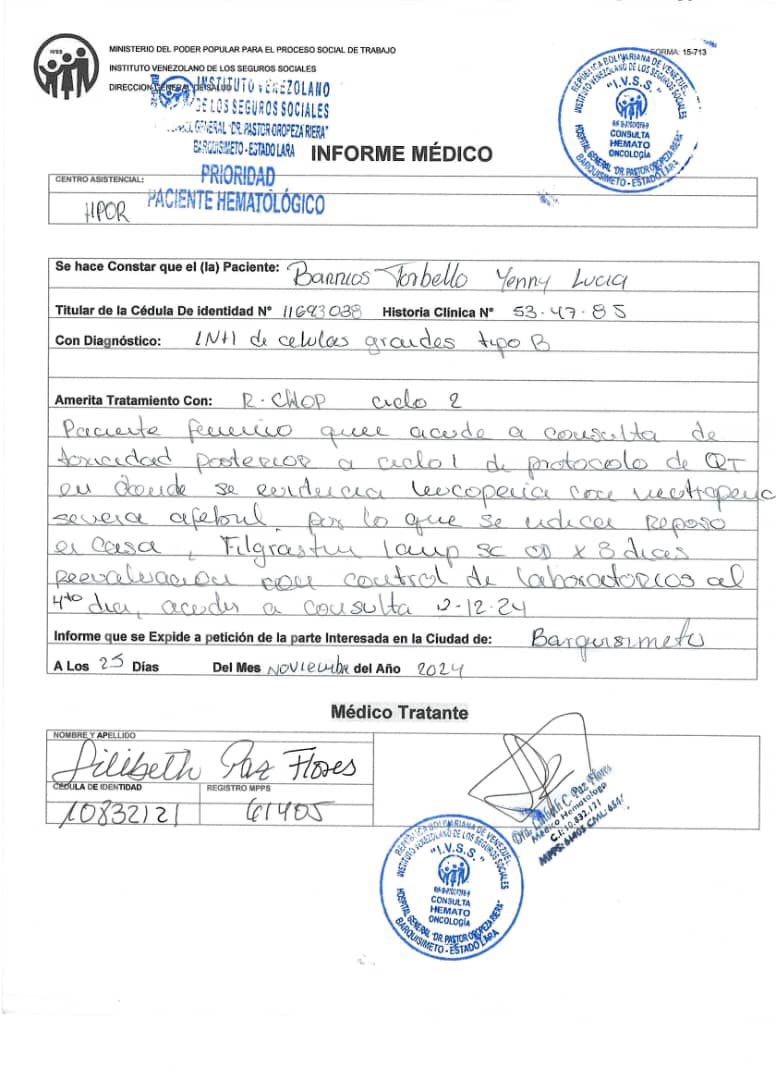 MINISTERIO DEL PODER POPULAR PARA EL PROCESO SOCIAL DE TRABAJO
FORMA: 15-713
INSTITUTO VENEZOLANO DE LOS SEGUROS SOCIALES
DIRECCION GENERAL DE SALUD
INSTITUTO VENEZOLANO
DE LOS SEGUROS SOCIALES
GENERAL "DR. PASTOR OROPEZA RIERA"
BARQUISIMETO - ESTADO LARA
PRIORIDAD
PACIENTE HEMATOLÓGICO
REPÚBLICA BOLIVARIANA DE VENEZUEL
INSTITUTO VENEZOLANO DE LOS SEGUROS SOCIALES
"I.V.S.S."
CONSULTA
HEMATO
ONCOLOGÍA
HOSPITAL GENERAL "DR. PASTOR OROPEZA RIERA"
BARQUISIMETO - ESTADO LARA
INFORME MÉDICO
CENTRO ASISTENCIAL:
HPOR
Se hace Constar que el (la) Paciente: Barrios Torbello Yenny Lucia
Titular de la Cédula De identidad N° 11693038 Historia Clínica N° 53-47-85
Con Diagnóstico: LNH de celulas grandes tipo B
Amerita Tratamiento Con: R-CHOP ciclo 2
Paciente femenino quien acude a consulta de
toxicidad posterior a ciclo 1 de protocolo de QT
en donde se evidencia leucopenia con neutropenia
severa afebril, por lo que se indica Reposo
en casa, Filgrastim 1amp SC OD x 3 dias
Reevaluacion con control de laboratorios al
4to dia, acudir a consulta 2-12-24
Informe que se Expide a petición de la parte Interesada en la Ciudad de: Barquisimeto
A Los 25 Días Del Mes Noviembre del Año 2024
Médico Tratante
NOMBRE Y APELLIDO
Lilibeth Paz Flores
CÉDULA DE IDENTIDAD REGISTRO MPPS
10832121 61405
Dra. Lilibeth C. Paz Flores
Médico Hematólogo
C.I: 10.832.121
MPPS: 61405 CML:
REPÚBLICA BOLIVARIANA DE VENEZUEL
INSTITUTO VENEZOLANO DE LOS SEGUROS SOCIALES
"I.V.S.S."
CONSULTA
HEMATO
ONCOLOGÍA
HOSPITAL GENERAL "DR. PASTOR OROPEZA RIERA"
BARQUISIMETO - ESTADO LARA